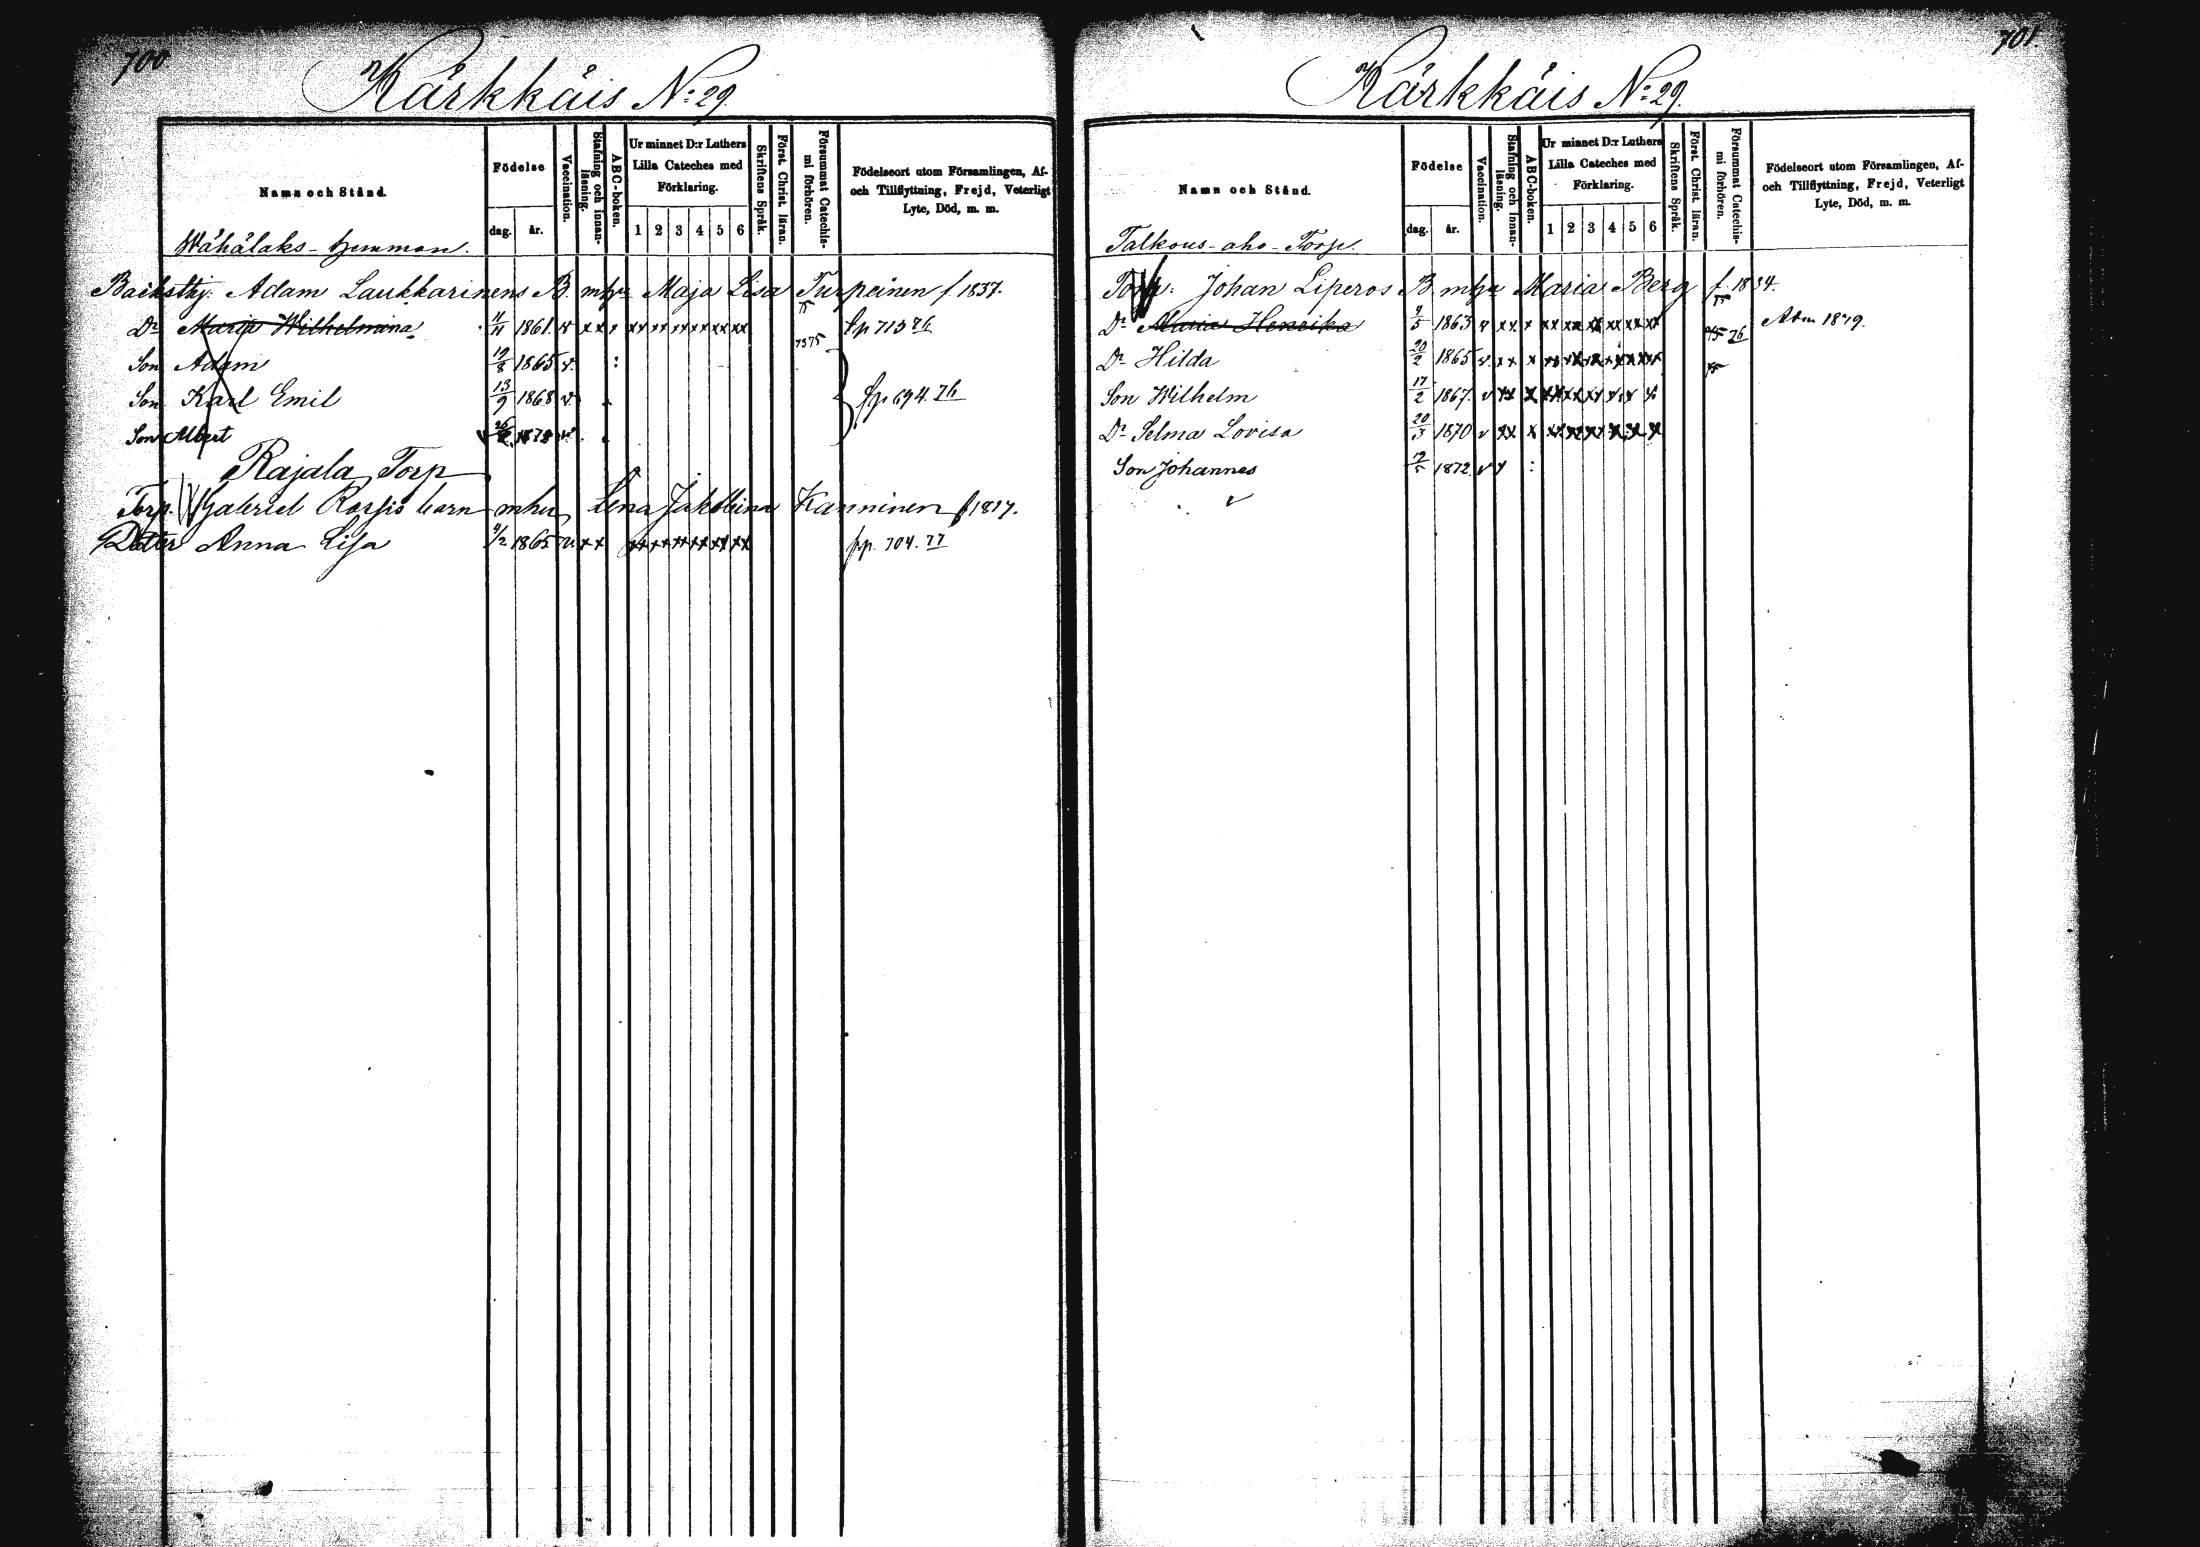 700
Kärkkäis No: 29.
Namn och Stånd.
Födelse
dag. år.
Vaccination.
Stafning och innanläsning.
ABC-boken.
Ur minnet D:r Luthers Lilla Cateches med Förklaring.
1 2 3 4 5 6
Skriftens Språk.
Först. Christ. läran.
Försummat Catechismi förhören.
Födelseort utom Församlingen, Af- och Tillflyttning, Frejd, Veterligt Lyte, Död, m. m.
Wähälaks-hemman.
Backsthj: Adam Laukkarinens B. mhu Maja Lisa Turpeinen f. 1837.
Dr Maria Wilhelmina 11/11 1861. v xx x xx xx xx xx xx xx 75 fp 713 76
Son Adam 1865 v. : 7375
Son Karl Emil 13/9 1868 v. fp 694. 76
Son Albert v
Rajala Torp
Torp. Gabriel barn mhu Lena Jakobina Kanninen f 1817.
Dotter Anna Lisa 1865 v. xx xx xx xx xx xx xx fp. 704. 77
701.
Kärkkäis No: 29.
Namn och Stånd.
Födelse
dag. år.
Vaccination.
Stafning och innanläsning.
ABC-boken.
Ur minnet D:r Luthers Lilla Cateches med Förklaring.
1 2 3 4 5 6
Skriftens Språk.
Först. Christ. läran.
Försummat Catechismi förhören.
Födelseort utom Församlingen, Af- och Tillflyttning, Frejd, Veterligt Lyte, Död, m. m.
Talkous-aho-Torp.
Torp: Johan Liperos B. mhu Maria Berg f. 1834.
Dr Maria Henrika 9/5 1863 v xx x xx xx xx xx xx xx 75 76 Abm 1879.
Dr Hilda 20/2 1865 v. xx x xx xx xx xx xx xx
Son Wilhelm 17/2 1867. v xx x xx xx xx x x x
Dr Selma Lovisa 20/3 1870 v xx x xx xx xx x x x
Son Johannes 12/5 1872. v x :